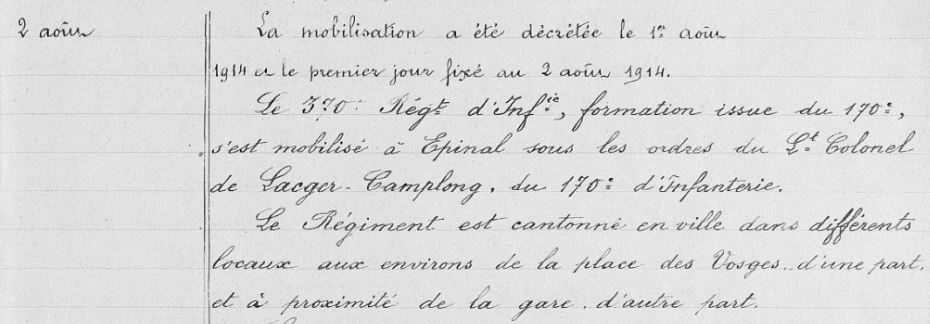 2 août
La mobilisation a été décrétée le 1er août
1914 et le premier jour fixé au 2 août 1914.
Le 370e Régt d'Infie, formation issue du 170e,
s'est mobilisé à Epinal sous les ordres du Lt Colonel
de Lacger-Camplong, du 170e d'Infanterie.
Le Régiment est cantonné en ville dans différents
locaux aux environs de la place des Vosges d'une part,
et à proximité de la gare, d'autre part.